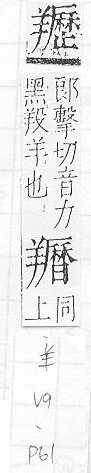 郎擊切音力
黑羖羊也
同
上
羊
V9
、
P61